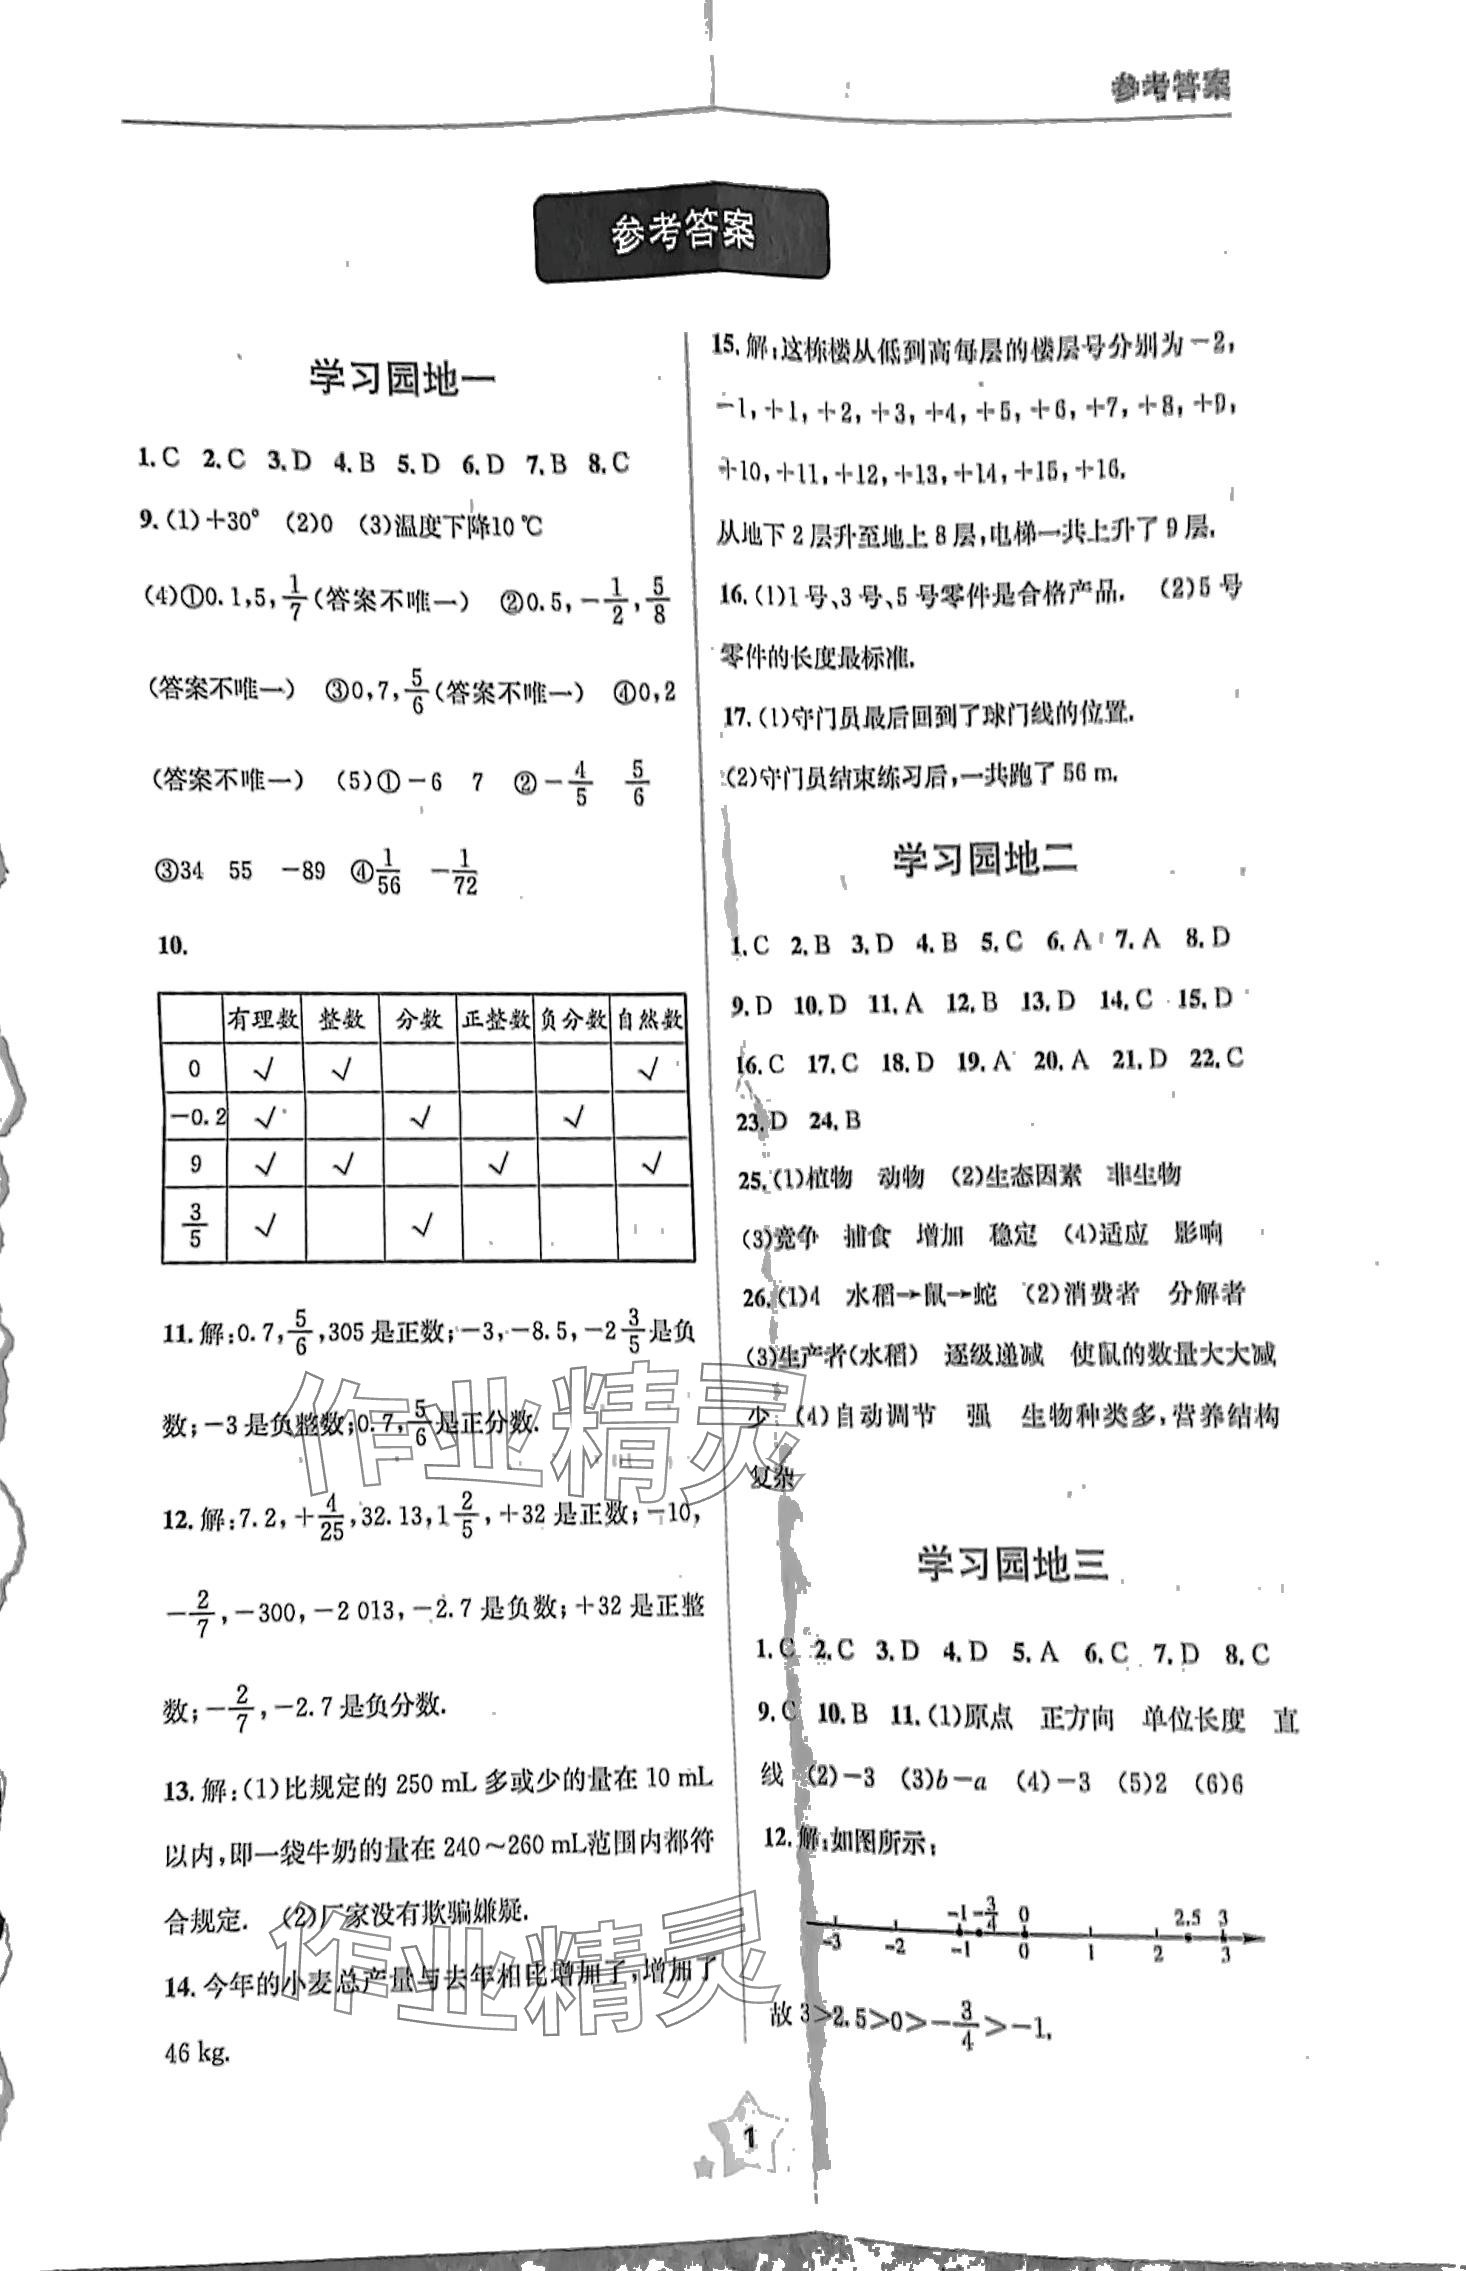 参考答案
参考答案
学习园地一
1. C 2. C 3. D 4. B 5. D 6. D 7. B 8. C
9. (1)+30° (2)0 (3)温度下降10 ℃
(4)①0.1,5,1/7(答案不唯一) ②0.5,-1/2,5/8
(答案不唯一) ③0,7,5/6(答案不唯一) ④0,2
(答案不唯一) (5)①-6 7 ②-4/5 5/6
③34 55 -89 ④1/56 -1/72
10.
有理数 整数 分数 正整数 负分数 自然数
0 √ √ √
-0.2 √ √ √
9 √ √ √ √
3/5 √ √
11. 解:0.7,5/6,305是正数;-3,-8.5,-2 3/5是负
数;-3是负整数;0.7,5/6是正分数.
12. 解:7.2,+4/25,32.13,1 2/5,+32是正数;-10,
-2/7,-300,-2 013,-2.7是负数;+32是正整
数;-2/7,-2.7是负分数.
13. 解:(1)比规定的250 mL多或少的量在10 mL
以内,即一袋牛奶的量在240~260 mL范围内都符
合规定. (2)厂家没有欺骗嫌疑.
14. 今年的小麦总产量与去年相比增加了,增加了
46 kg.
15. 解:这栋楼从低到高每层的楼层号分别为-2,
-1,+1,+2,+3,+4,+5,+6,+7,+8,+9,
+10,+11,+12,+13,+14,+15,+16.
从地下2层升至地上8层,电梯一共上升了9层.
16. (1)1号、3号、5号零件是合格产品. (2)5号
零件的长度最标准.
17. (1)守门员最后回到了球门线的位置.
(2)守门员结束练习后,一共跑了56 m.
学习园地二
1. C 2. B 3. D 4. B 5. C 6. A 7. A 8. D
9. D 10. D 11. A 12. B 13. D 14. C 15. D
16. C 17. C 18. D 19. A 20. A 21. D 22. C
23. D 24. B
25. (1)植物 动物 (2)生态因素 非生物
(3)竞争 捕食 增加 稳定 (4)适应 影响
26. (1)4 水稻→鼠→蛇 (2)消费者 分解者
(3)生产者(水稻) 逐级递减 使鼠的数量大大减
少 (4)自动调节 强 生物种类多,营养结构
复杂
学习园地三
1. C 2. C 3. D 4. D 5. A 6. C 7. D 8. C
9. C 10. B 11. (1)原点 正方向 单位长度 直
线 (2)-3 (3)b-a (4)-3 (5)2 (6)6
12. 解:如图所示:
-1 -3/4 0 2.5 3
-3 -2 -1 0 1 2 3
故3>2.5>0>-3/4>-1.
作业精灵
作业精灵
1